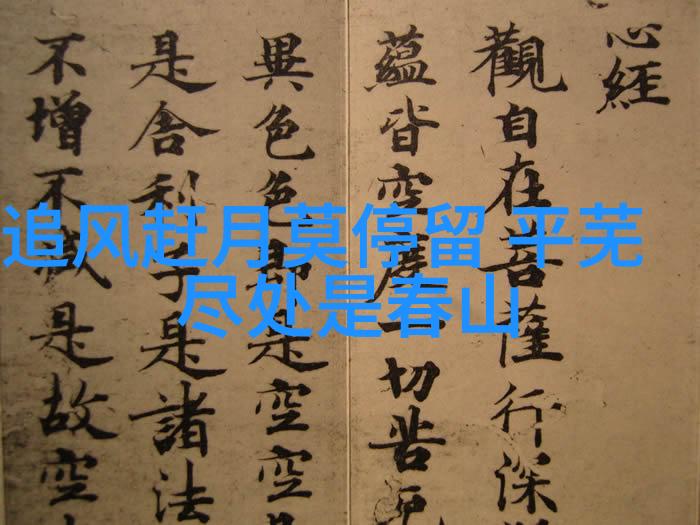 追风赶月莫停留 平芜
尽处是春山
心經
觀自在菩薩行深
蘊皆空度一切苦厄
異色色即是空空
是舍利子是諸法
不增不減是故空